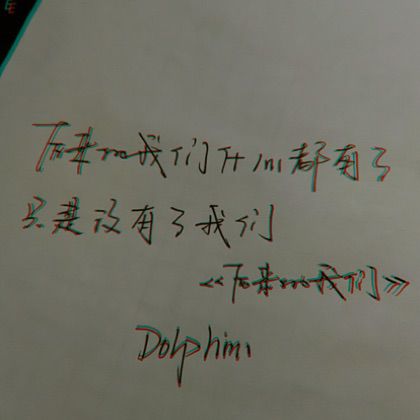 后来的我们什么都有了
只是没有了我们
《后来的我们》
Dolphini